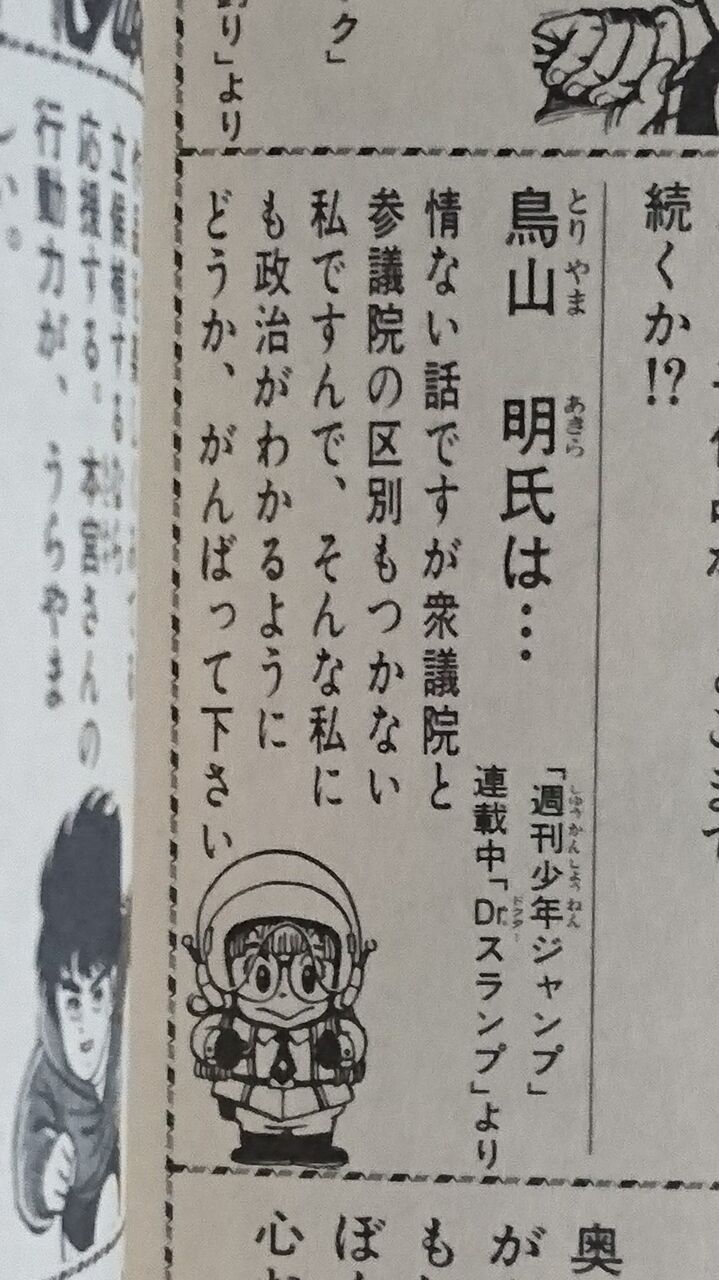 続くか!?
鳥山 明氏は…
とり やま
あきら
「週刊少年ジャンプ」
しゅう かん しょう ねん
連載中「Dr.スランプ」より
ドクター
情ない話ですが衆議院と
参議院の区別もつかない
私ですんで、そんな私に
も政治がわかるように
どうか、がんばって下さい
り」より
ク」
奥
が
も
ぼ
心
立候補するなら
応援する。本宮さんの
行動力が、うらやま
しい。